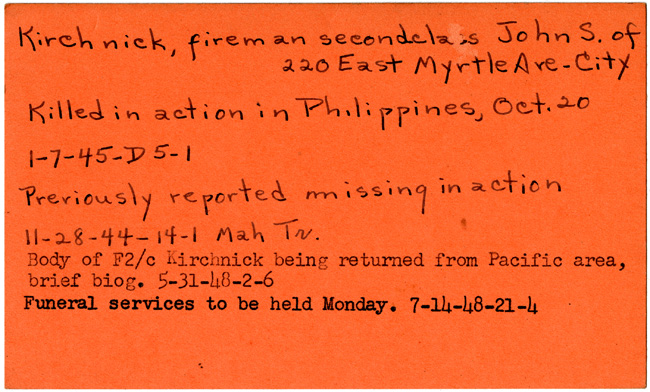 Kirchnick, fireman secondclass John S. of
220 East Myrtle Ave-City
Killed in action in Philippines, Oct. 20
1-7-45-D 5-1
Previously reported missing in action
11-28-44-14-1 Mah Tr.
Body of F2/c Kirchnick being returned from Pacific area,
brief biog. 5-31-48-2-6
Funeral services to be held Monday. 7-14-48-21-4